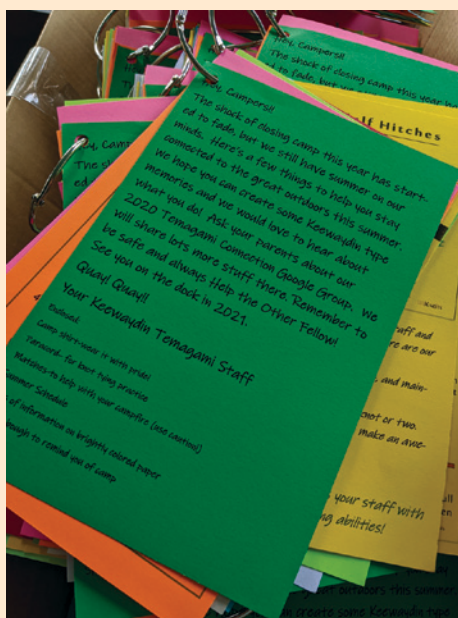 Hey, Campers!!
The shock of closing camp this year has start-
ed to fade, but we still have summer on our
minds. Here's a few things to help you stay
connected to the great outdoors this summer.
We hope you can create some Keewaydin type
memories and we would love to hear about
what you do! Ask your parents about our
2020 Temagami Connection Google Group. We
will share lots more stuff there. Remember to
be safe and always Help the Other Fellow!
See you on the dock in 2021.
Quay! Quay!!
Your Keewaydin Temagami Staff
Enclosed:
Camp shirt-wear it with pride!
for knot tying practice
Matches-to help with your campfire (use caution!)
Summer Schedule
of information on brightly colored paper
to remind you of camp
Hey, Campers!!
The shock of closing camp this year ha
ed to fade, but we
Hey, Camp
The sh
ed
Half Hitches
uff and
re are our
and main-
knot or two.
make an awe-
s your staff with
ng abilities!
great outdoors this summer.
create some Keewaydin type